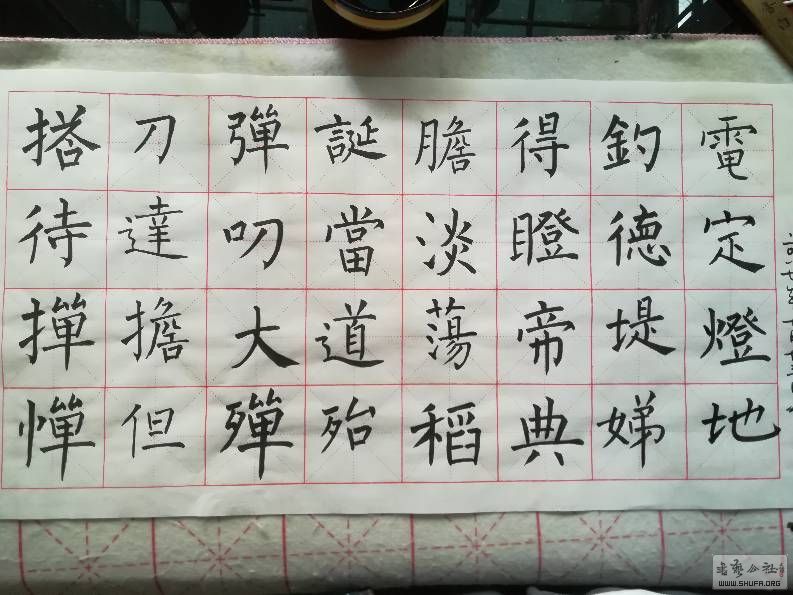 搭刀彈誕膽得釣電
待達叨當淡瞪德定
撣擔大道蕩帝堤燈
憚但殫殆稻典娣地
书艺公社
WWW.SHUFA.ORG